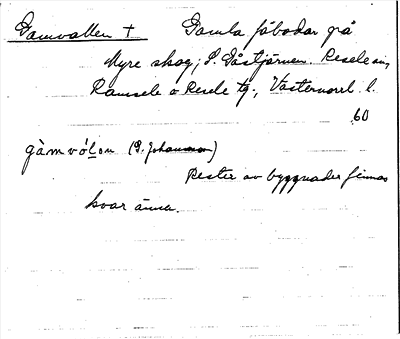 Gamvallen + Gamla fäbodar på
Myre skog, S. Gåstjärnen. Resele sn,
Ramsele o Resele tg., Västernorrl. l.
60
gàmvóḷon (G. Johansson)
Rester av byggnader finnas
kvar ännu.